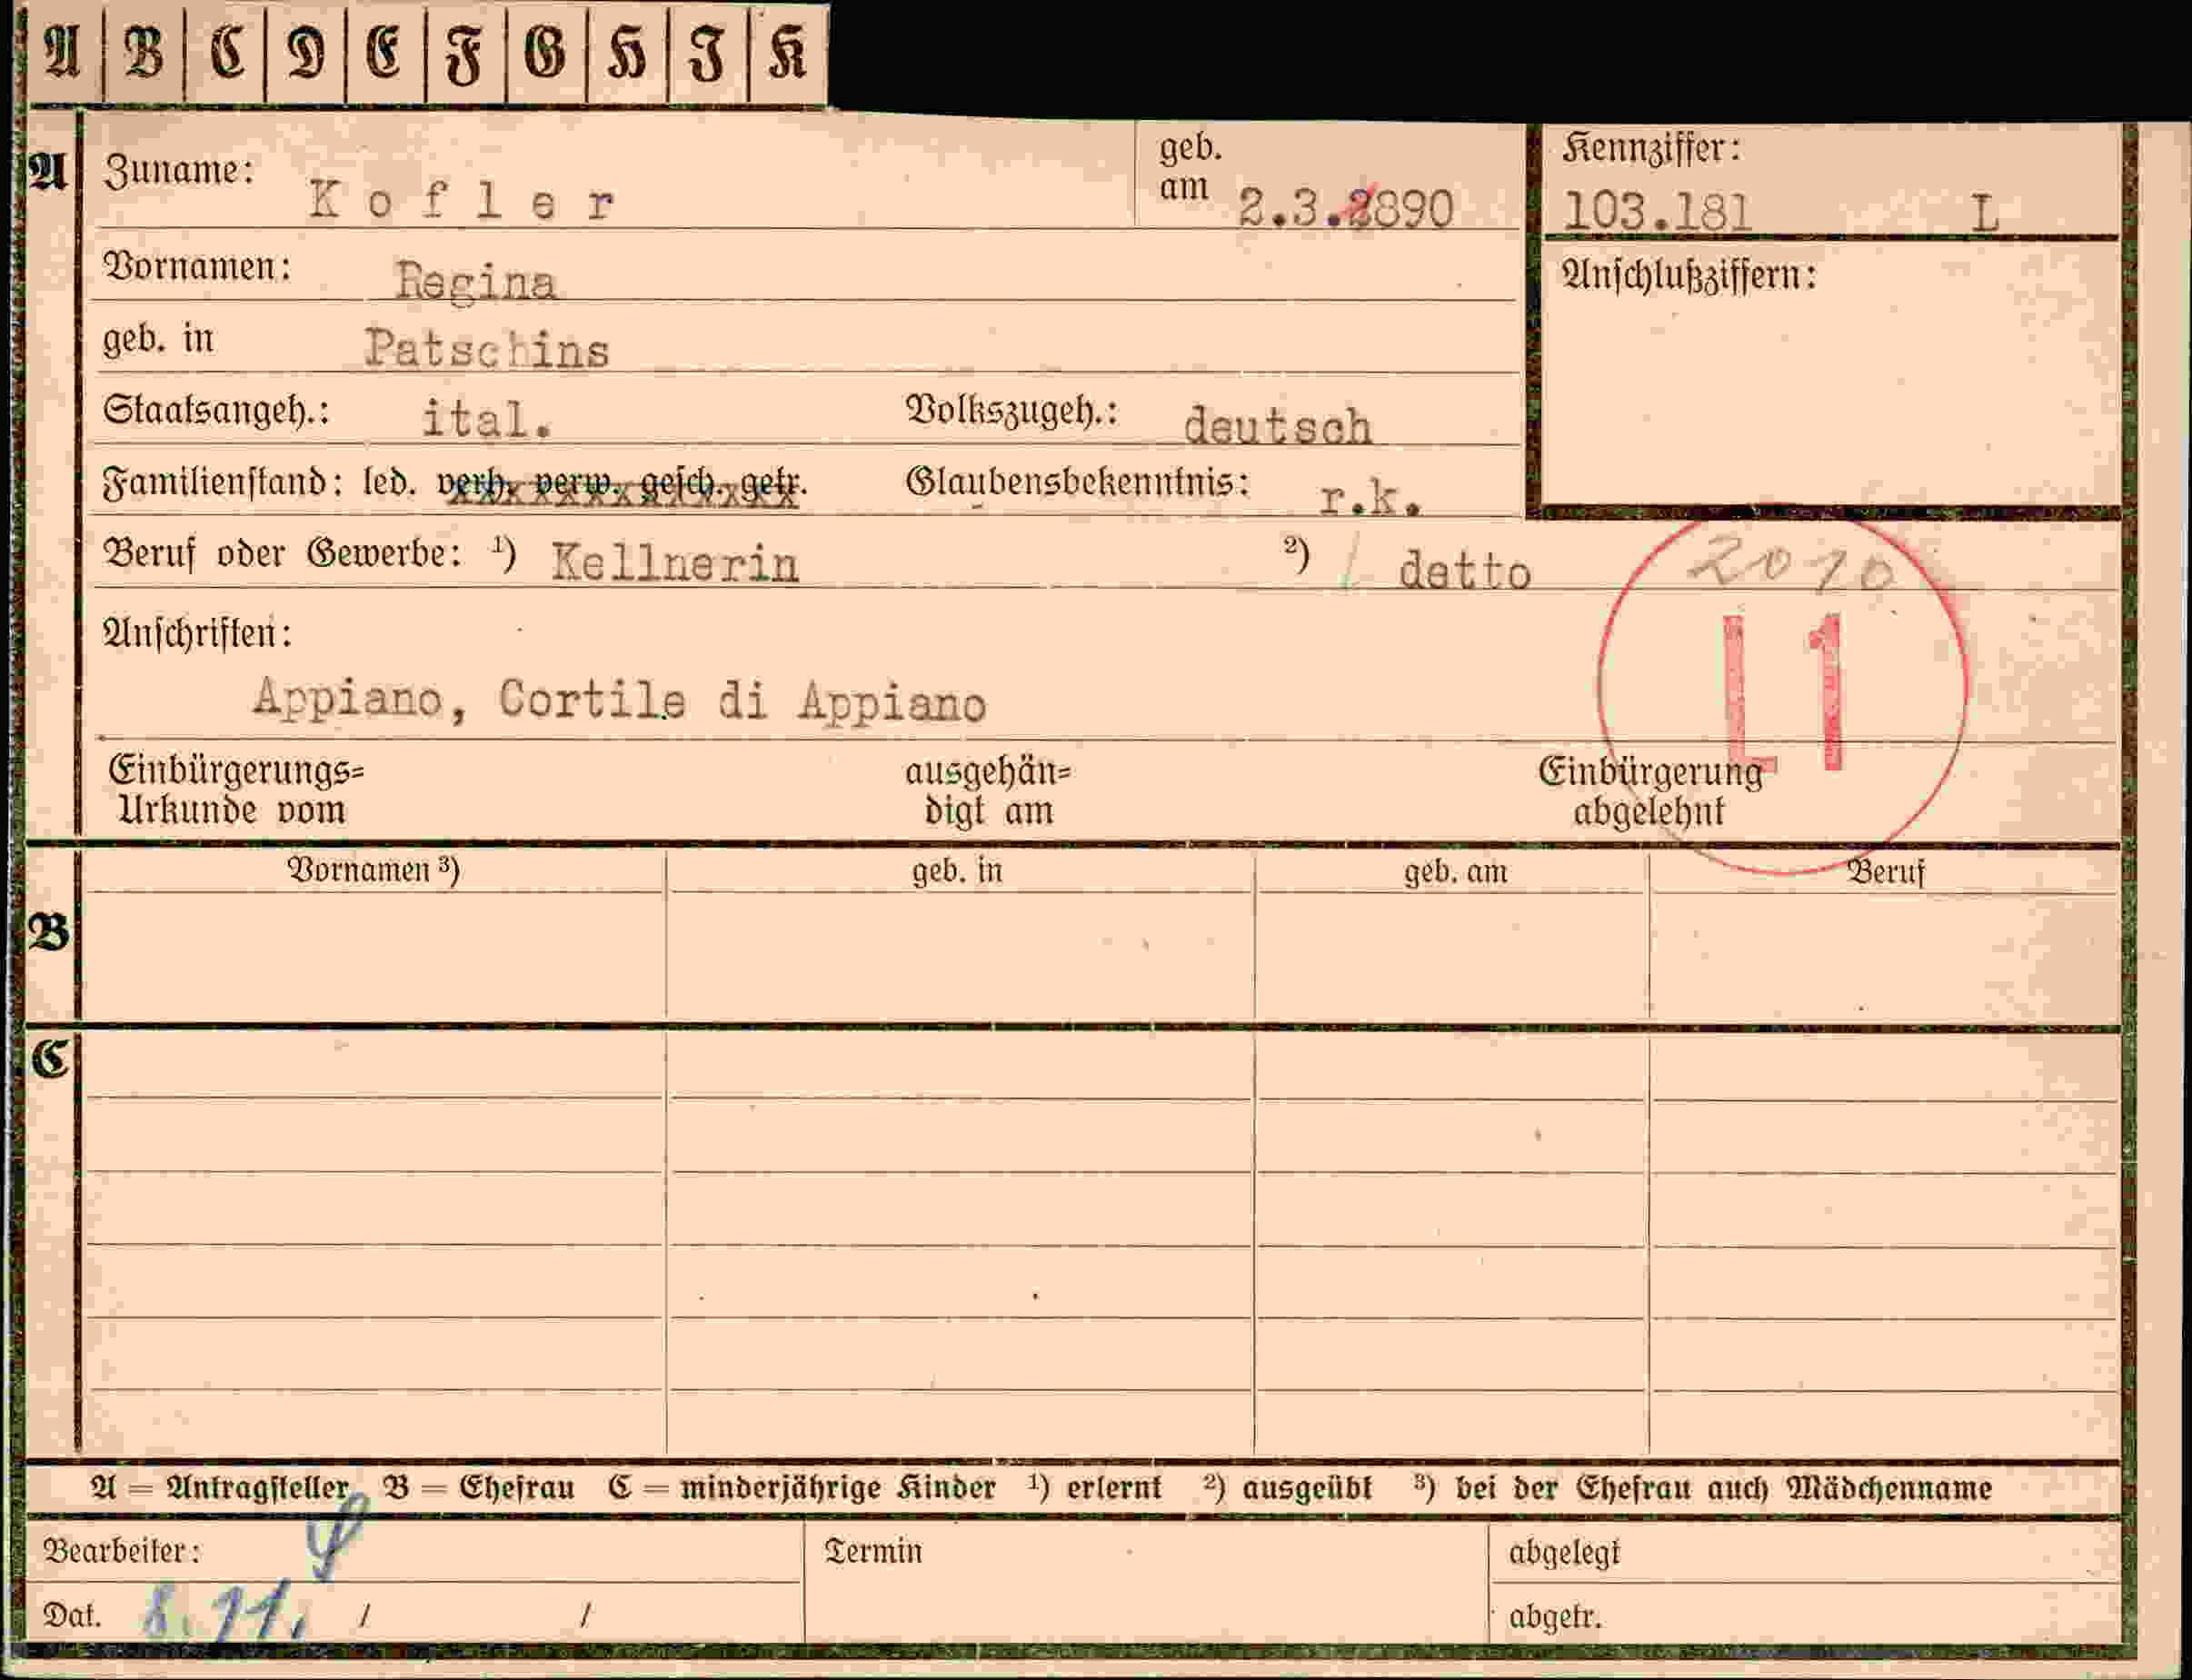 A B C D E F G H J K
A Zuname: Kofler geb. am 2.3.1890 Kennziffer: 103.181 L
Vornamen: Regina Anschlußziffern:
geb. in Patschins
Staatsangeh.: ital. Volkszugeh.: deutsch
Familienstand: led. verh. verw. gesch. getr. Glaubensbekenntnis: r.k.
Beruf oder Gewerbe: ¹) Kellnerin ²) detto 2010
Anschriften: L1
Appiano, Cortile di Appiano
Einbürgerungs= ausgehän= Einbürgerung
Urkunde vom digt am abgelehnt
Vornamen ³) geb. in geb. am Beruf
B
C
A = Antragsteller B = Ehefrau C = minderjährige Kinder ¹) erlernt ²) ausgeübt ³) bei der Ehefrau auch Mädchenname
Bearbeiter: Termin abgelegt
Dat. 8.11. / / abgetr.